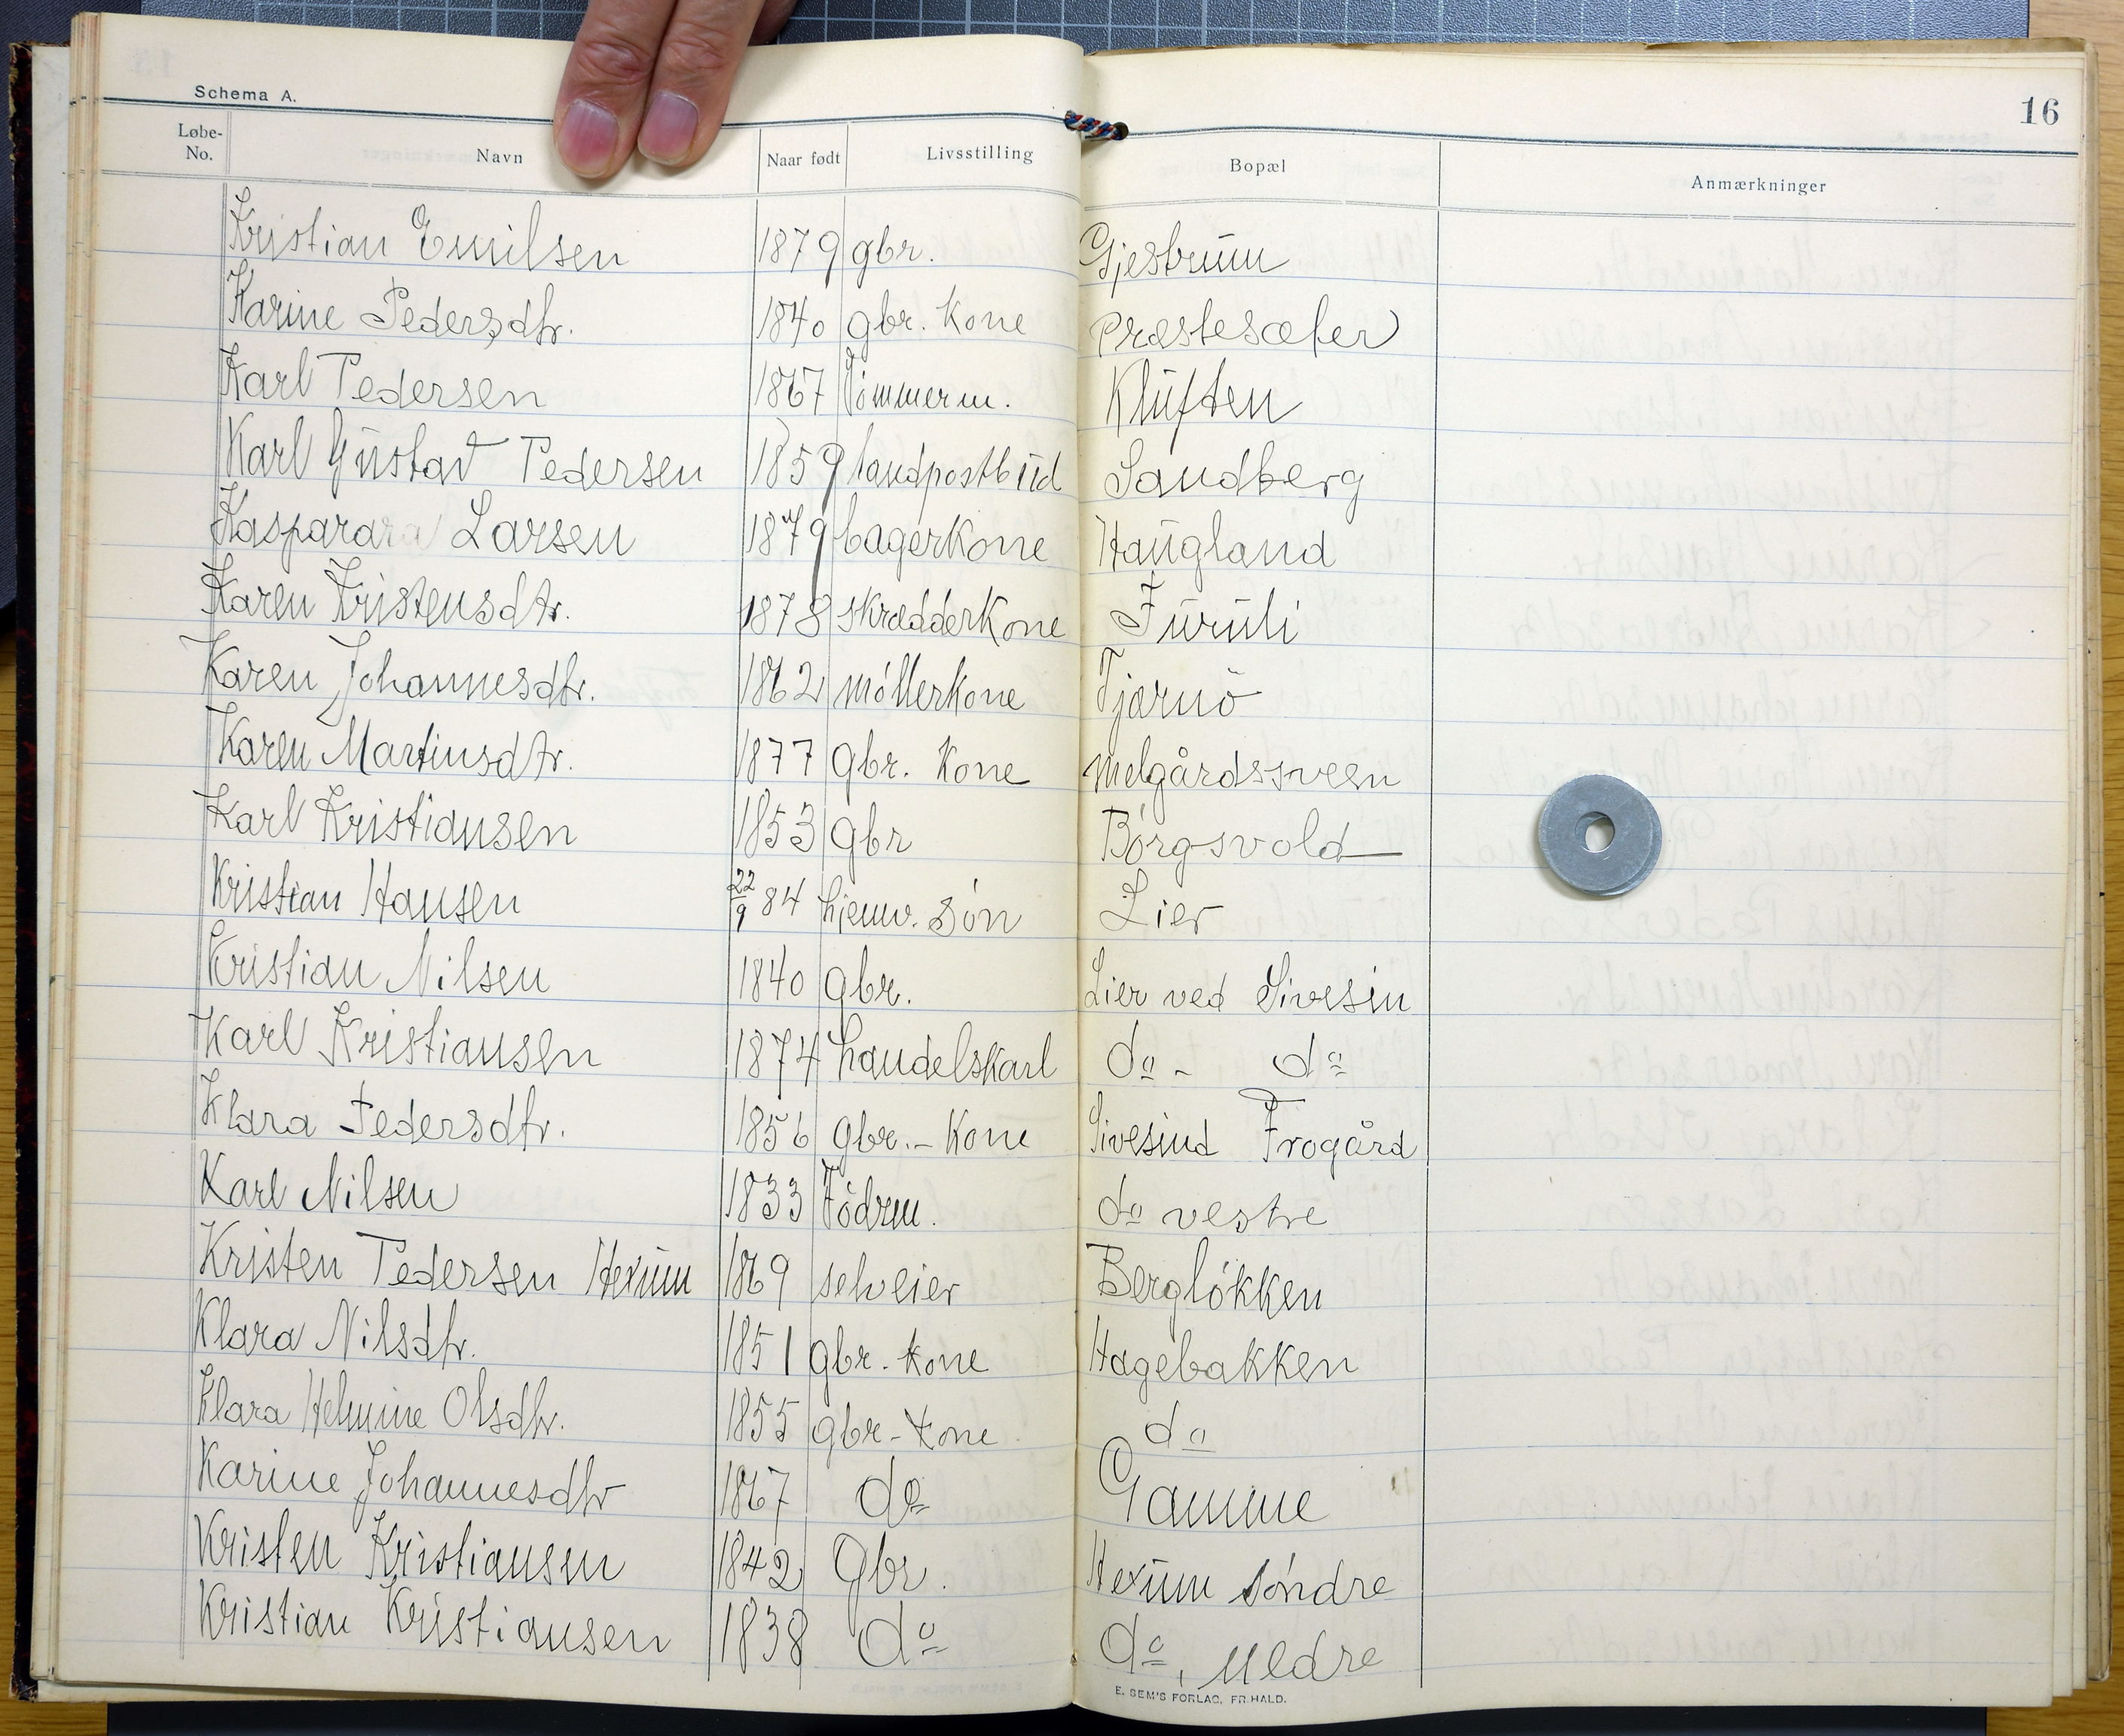 Schema A.
16
Løbe-No. Navn Naar født Livsstilling Bopæl Anmærkninger
Kristian Emilsen 1879 gbr. Gjestrŭm
Karine Pedersdtr. 1840 gbr. Kone Præstesæter
Karl Pedersen 1867 Tömmerm. Klŭften
Karl Gŭstav Pedersen 1859 landpostbŭd Sandberg
Kasparara Larsen 1879 bagerkone Haŭgland
Karen Kristensdtr. 1878 skrædderkone Fŭrŭli
Karen Johannesdtr. 1862 møllerkone Tjærnö
Karen Martinsdtr. 1877 gbr. Kone Melgårdssveen
Karl Kristiansen 1853 gbr Börgsvold
Kristian Hansen 22/9 84 hjemv. søn Lier
Kristian Nilsen 1840 gbr. Lier ved Sivesin
Karl Kristiansen 1874 handelskarl do - do
Klara Pedersdtr. 1856 gbr. - Kone Sivesind Frogård
Karl Nilsen 1833 Födrm. do vestre
Kristen Pedersen Hexŭm 1869 selveier Bergløkken
Klara Nilsdtr. 1851 gbr. kone Hagebakken
Klara Helmine Olsdtr. 1855 gbr - kone do
Karine Johannesdtr 1867 do Gamme
Kristen Kristiansen 1842 Gbr. Hexŭm søndre
Kristian Kristiansen 1838 do do,
E. SEM'S FORLAG, FR.HALD.